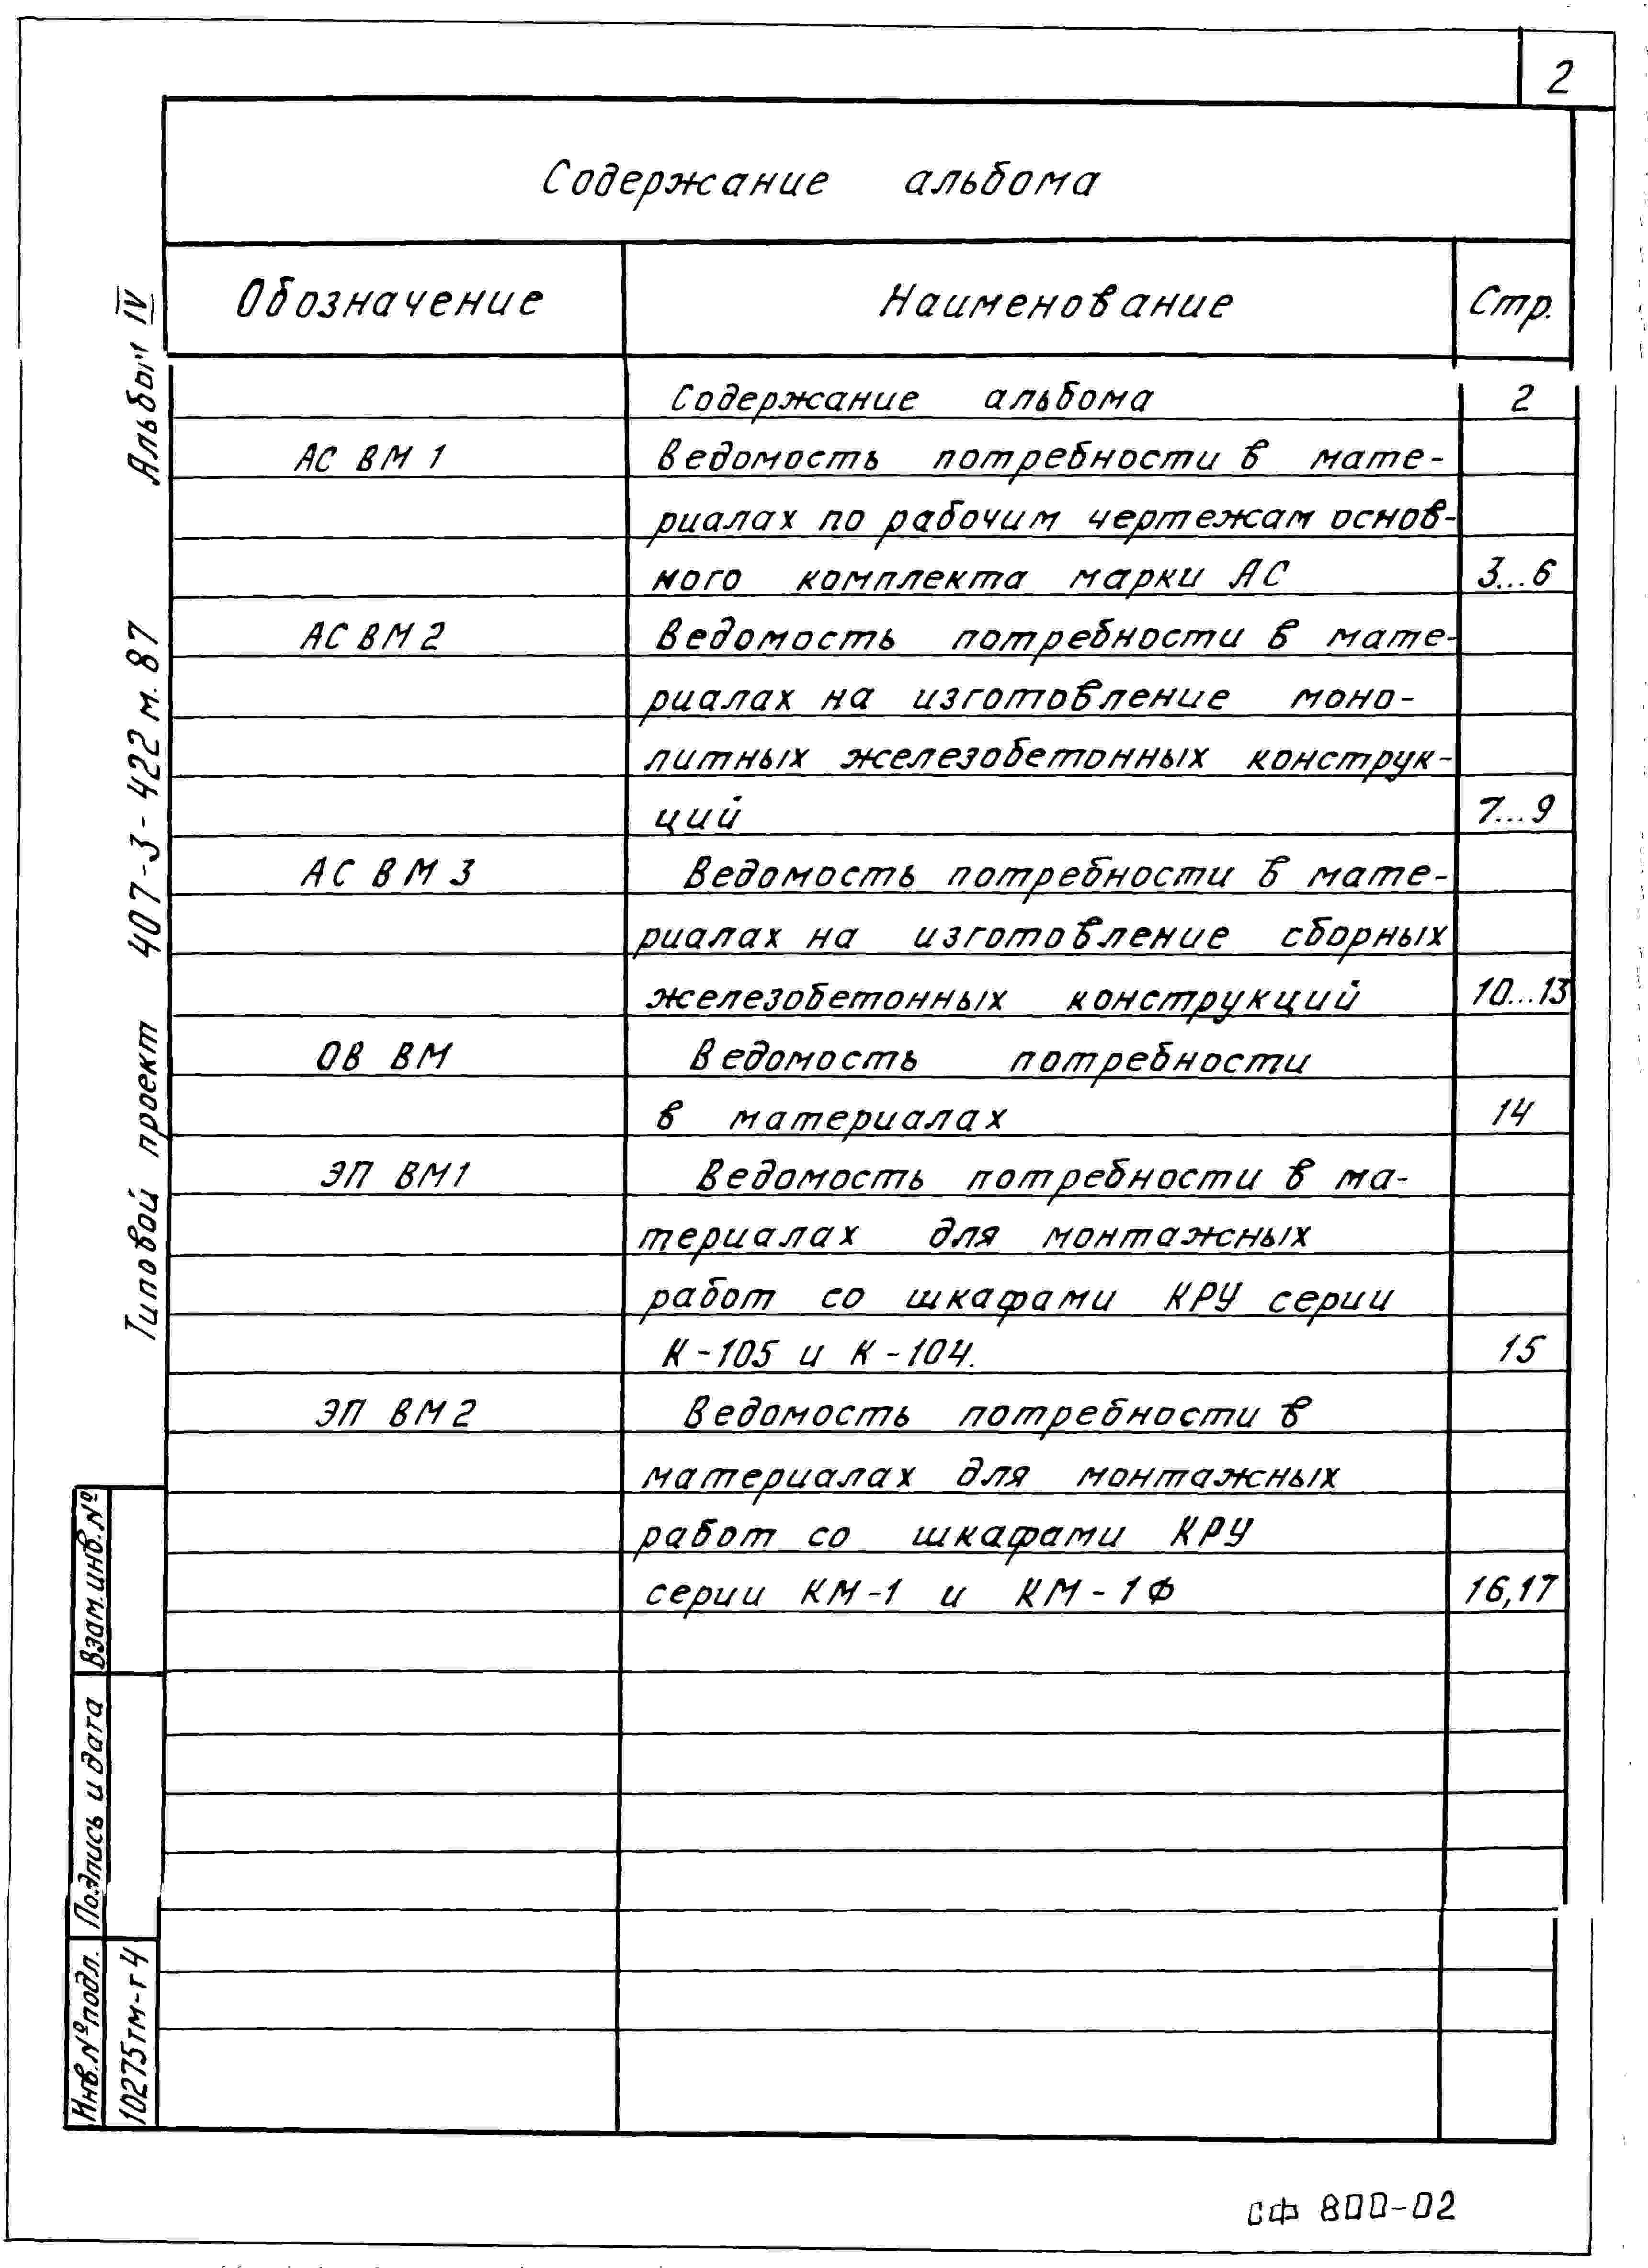 2
Содержание альбома
Обозначение Наименование Стр.
Содержание альбома 2
АС ВМ 1 Ведомость потребности в мате-
риалах по рабочим чертежам основ-
ного комплекта марки АС 3...6
АС ВМ 2 Ведомость потребности в мате-
риалах на изготовление моно-
литных железобетонных конструк-
ций 7...9
АС ВМ 3 Ведомость потребности в мате-
риалах на изготовление сборных
железобетонных конструкций 10...13
ОВ ВМ Ведомость потребности
в материалах 14
ЭП ВМ1 Ведомость потребности в ма-
териалах для монтажных
работ со шкафами КРУ серии
К-105 и К-104. 15
ЭП ВМ2 Ведомость потребности в
материалах для монтажных
работ со шкафами КРУ
серии КМ-1 и КМ-1Ф 16,17
Типовой проект 407-3-422 м.87 Альбом IV
Взам.инв.№
Подпись и дата
Инв.№подл.
10275тм-т4
сф 800-02